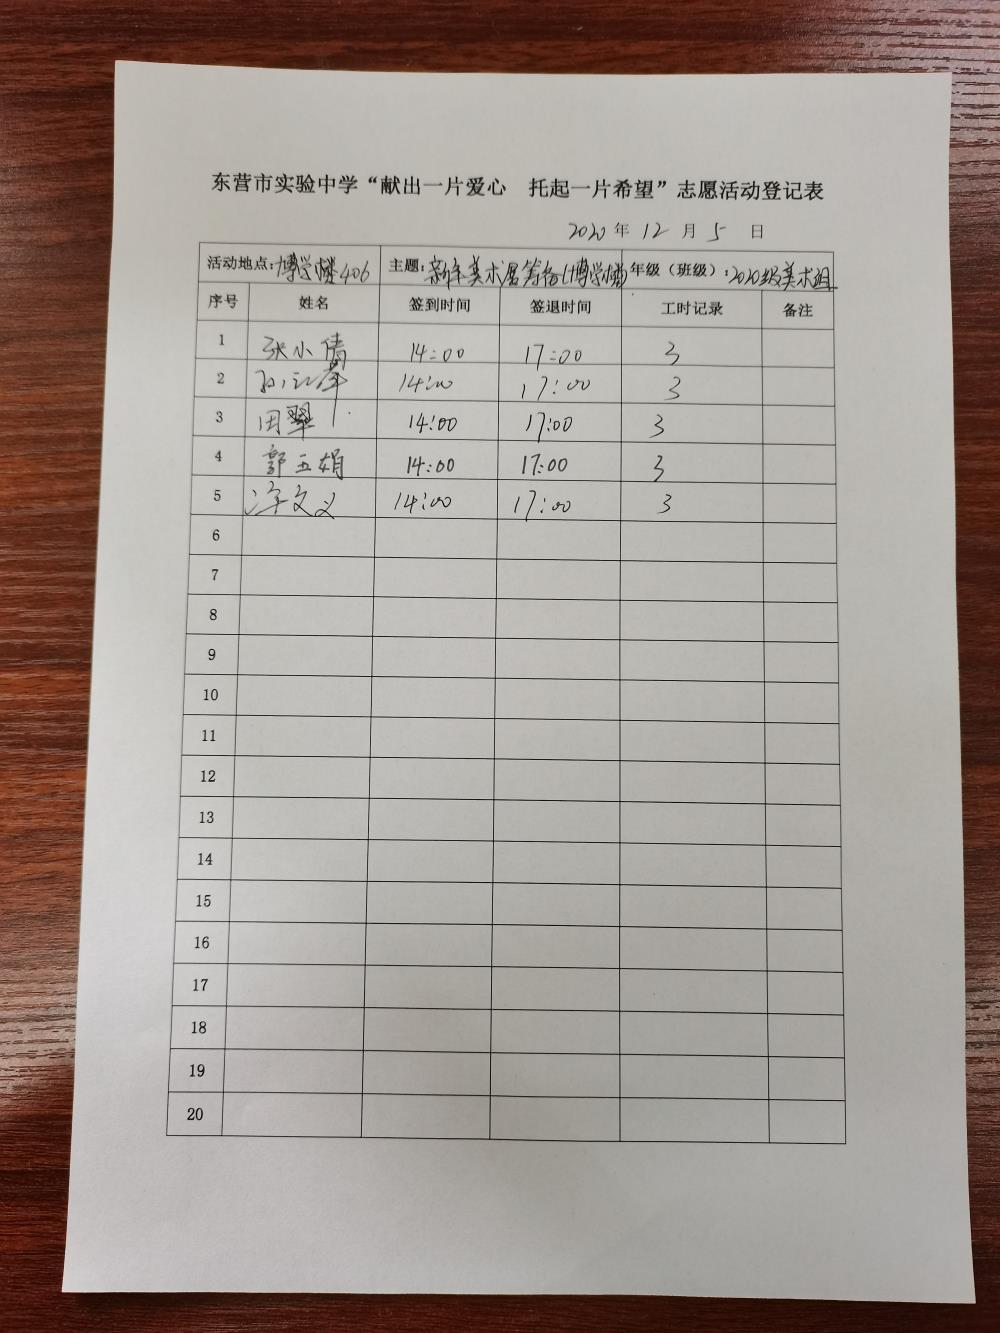 东营市实验中学“献出一片爱心 托起一片希望”志愿活动登记表
2020 年 12 月 5 日
活动地点：博学楼406 主题：新年美术展筹备（博学楼） 年级（班级）：2020级美术组
序号 姓名 签到时间 签退时间 工时记录 备注
1 张小倩 14:00 17:00 3
2 14:00 17:00 3
3 田翠 14:00 17:00 3
4 郭玉娟 14:00 17:00 3
5 文义 14:00 17:00 3
6
7
8
9
10
11
12
13
14
15
16
17
18
19
20